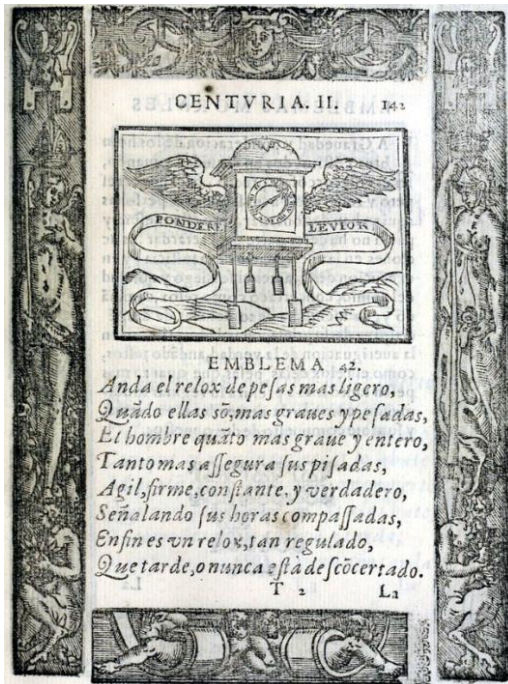 CENTVRIA. II. 142
PONDERE LEVIOR
EMBLEMA 42.
Anda el relox de peſas mas ligero,
Quãdo ellas sõ, mas graues y peſadas,
El hombre quãto mas graue y entero,
Tanto mas aſſegura ſus piſadas,
Agil, firme, conſtante, y verdadero,
Señalando ſus horas compaſſadas,
En fin es vn relox, tan regulado,
Que tarde, o nunca eſtà deſcõcertado.
T 2 La